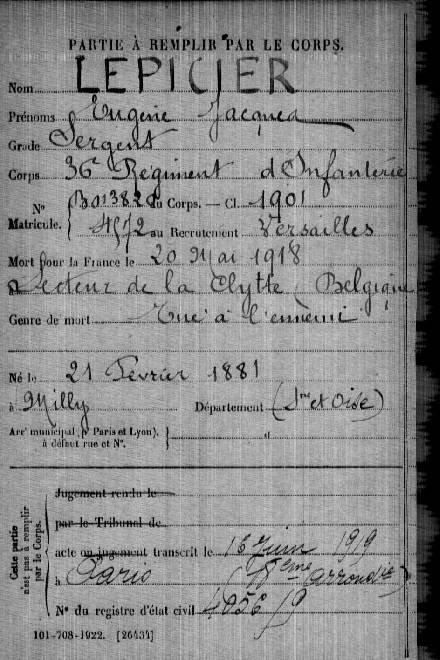 PARTIE À REMPLIR PAR LE CORPS.
Nom LEPICIER
Prénoms Eugène Jacques
Grade Sergent
Corps 36e Régiment d'Infanterie
N° Matricule. { au Corps. — Cl. 1901
4572 au Recrutement Versailles
Mort pour la France le 20 Mai 1918
à Secteur de la Clytte, Belgique
Genre de mort Tué à l'ennemi
Né le 21 Février 1881
à Milly Département (Sne et Oise)
Arrt municipal (pr Paris et Lyon), à défaut rue et N°. }
Cette partie n'est pas à remplir par le Corps. {
Jugement rendu le
par le Tribunal de
acte ou jugement transcrit le 16 Juin 1919
à Paris
N° du registre d'état civil
101-708-1922. [26434]